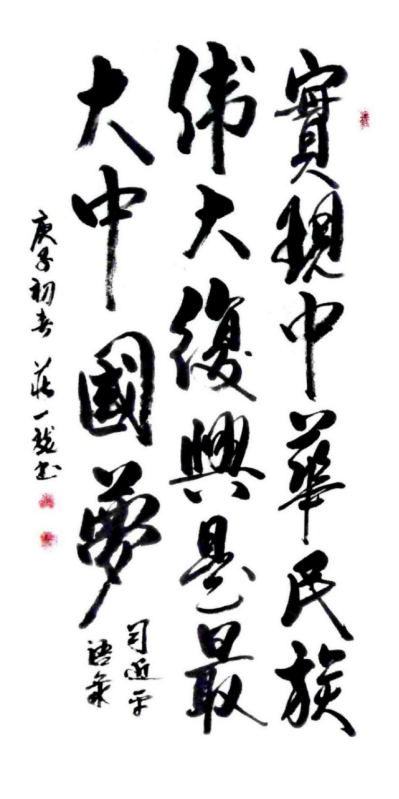 實現中華民族
偉大復興是最
大中國夢
習近平
語錄
庚子初春 莊一龍书